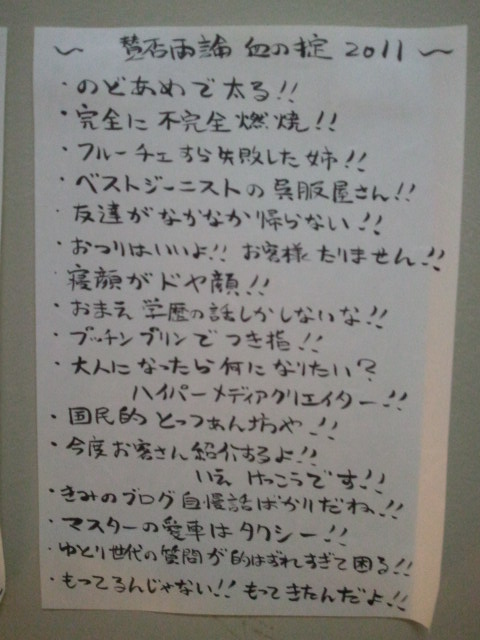 〜 賛否両論 血の掟 2011 〜
・のどあめで太る!!
・完全に不完全燃焼!!
・フルーチェすら失敗した姉!!
・ベストジーニストの呉服屋さん!!
・友達がなかなか帰らない!!
・おつりはいいよ!! お客様たりません!!
・寝顔がドヤ顔!!
・おまえ学歴の話しかしないな!!
・プッチンプリンでつき指!!
・大人になったら何になりたい?
ハイパーメディアクリエイター!!
・国民的とっつぁん坊や!!
・今度お客さん紹介するよ!!
いえ けっこうです!!
・きみのブログ自慢話ばかりだね!!
・マスターの愛車はタクシー!!
・ゆとり世代の質問が的はずれすぎて困る!!
・もってるんじゃない!! もってきたんだよ!!